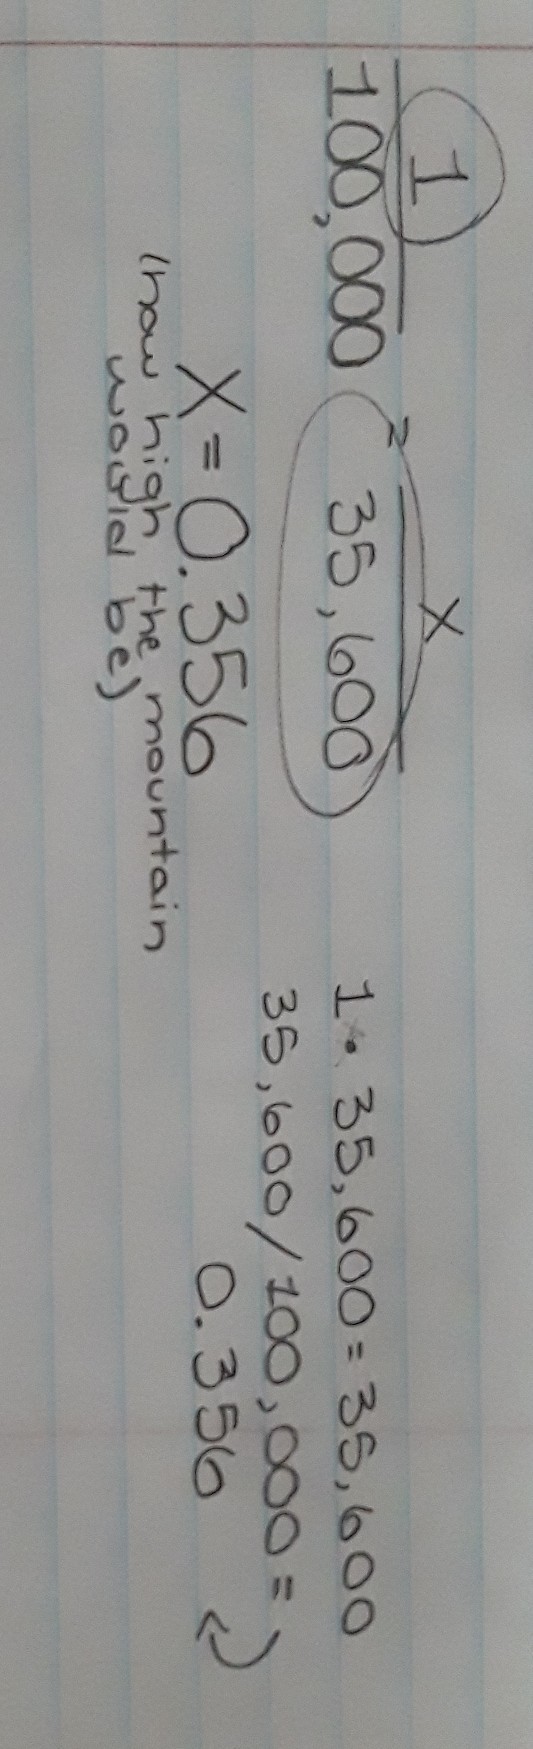 1 = X
100,000 35,600
1 • 35,600 = 35,600
35,600 / 100,000 =
0.356
X = 0.356
(how high the mountain
would be)